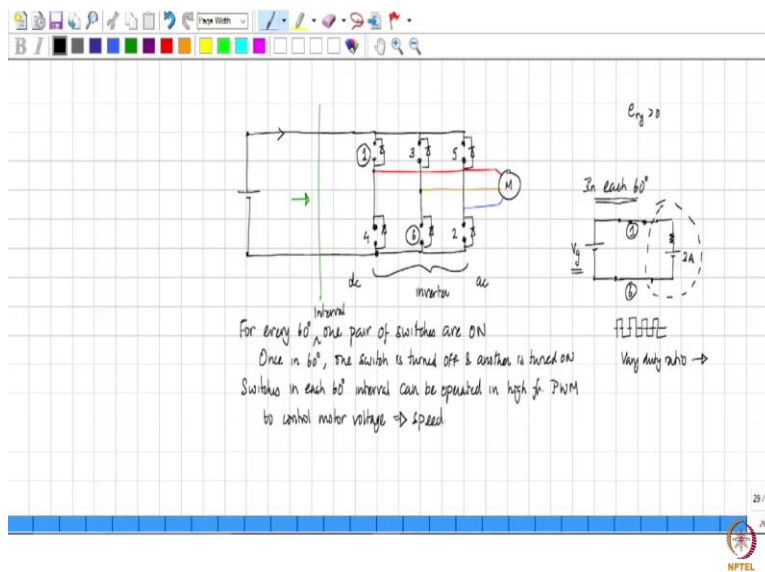 Page Width
B I
e_ry > 0
1 3 5
M
In each 60°
1
Vg
2A
4 6 2
6
dc inverter ac
Interval
For every 60°, one pair of switches are ON
Once in 60°, one switch is turned off & another is turned ON
Vary duty ratio →
Switches in each 60° interval can be operated in high fr. PWM
to control motor voltage ⇒ speed
29 /
NPTEL